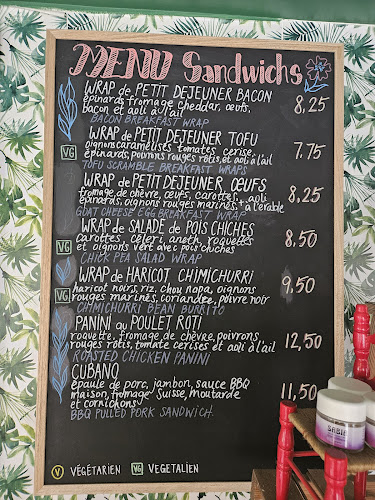 MENU Sandwichs
WRAP de PETIT DEJEUNER BACON
épinards, fromage cheddar, œufs,
bacon et aoli à l'ail
8,25
BACON BREAKFAST WRAP
WRAP de PETIT DEJEUNER TOFU
VG
oignons caramelisés, tomates cerise,
7.75
épinards, poivrons rouges rôtis, et aoli à l'ail
TOFU SCRAMBLE BREAKFAST WRAPS
WRAP de PETIT DEJEUNER ŒUFS
fromage de chèvre, œufs, carottes, aoli
8,25
épinards, oignons rouges marinés, à l'érable
GOAT CHEESE EGG BREAKFAST WRAP
WRAP de SALADE de POIS CHICHES
carottes, céleri, aneth, roquettes
8,50
VG
et oignons vert avec pois chiches
CHICK PEA SALAD WRAP
WRAP de HARICOT CHIMICHURRI
haricot noirs, riz, chou napa, oignons
9,50
VG
rouges marinés, coriandre, poivre noir
CHIMICHURRI BEAN BURRITO
PANINI au POULET ROTI
roquette, fromage de chèvre, poivrons
12,50
rouges rôtis, tomate cerises et aoli à l'ail
ROASTED CHICKEN PANINI
CUBANO
épaule de porc, jambon, sauce BBQ
maison, fromage Suisse, moutarde
11,50
et cornichons
BBQ PULLED PORK SANDWICH.
V VÉGÉTARIEN VG VEGETALIEN